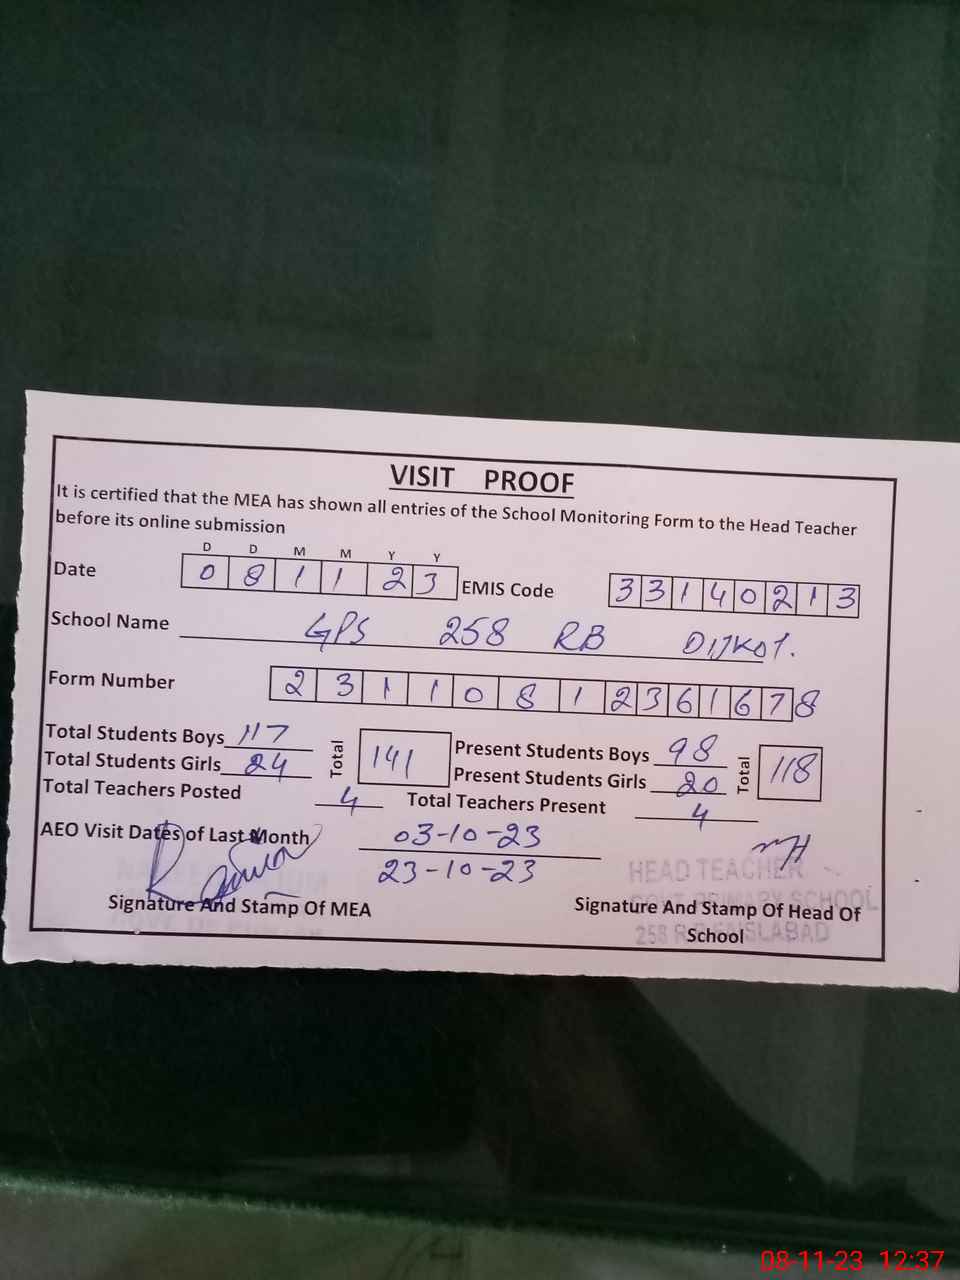 VISIT PROOF
It is certified that the MEA has shown all entries of the School Monitoring Form to the Head Teacher
before its online submission
D D M M Y Y
Date 0 8 1 1 2 3 EMIS Code 3 3 1 4 0 2 1 3
School Name GPS 258 RB DIJKOT.
Form Number 2 3 1 1 0 8 1 2 3 6 1 6 7 8
Total Students Boys 117 Total 141 Present Students Boys 98 Total 118
Total Students Girls 24 Present Students Girls 20
Total Teachers Posted 4 Total Teachers Present 4
AEO Visit Dates of Last Month 03-10-23
23-10-23
HEAD TEACHER
GOVT PRIMARY SCHOOL
Signature And Stamp Of MEA Signature And Stamp Of Head Of
School
258 R.B FAISLABAD
08-11-23 12:37